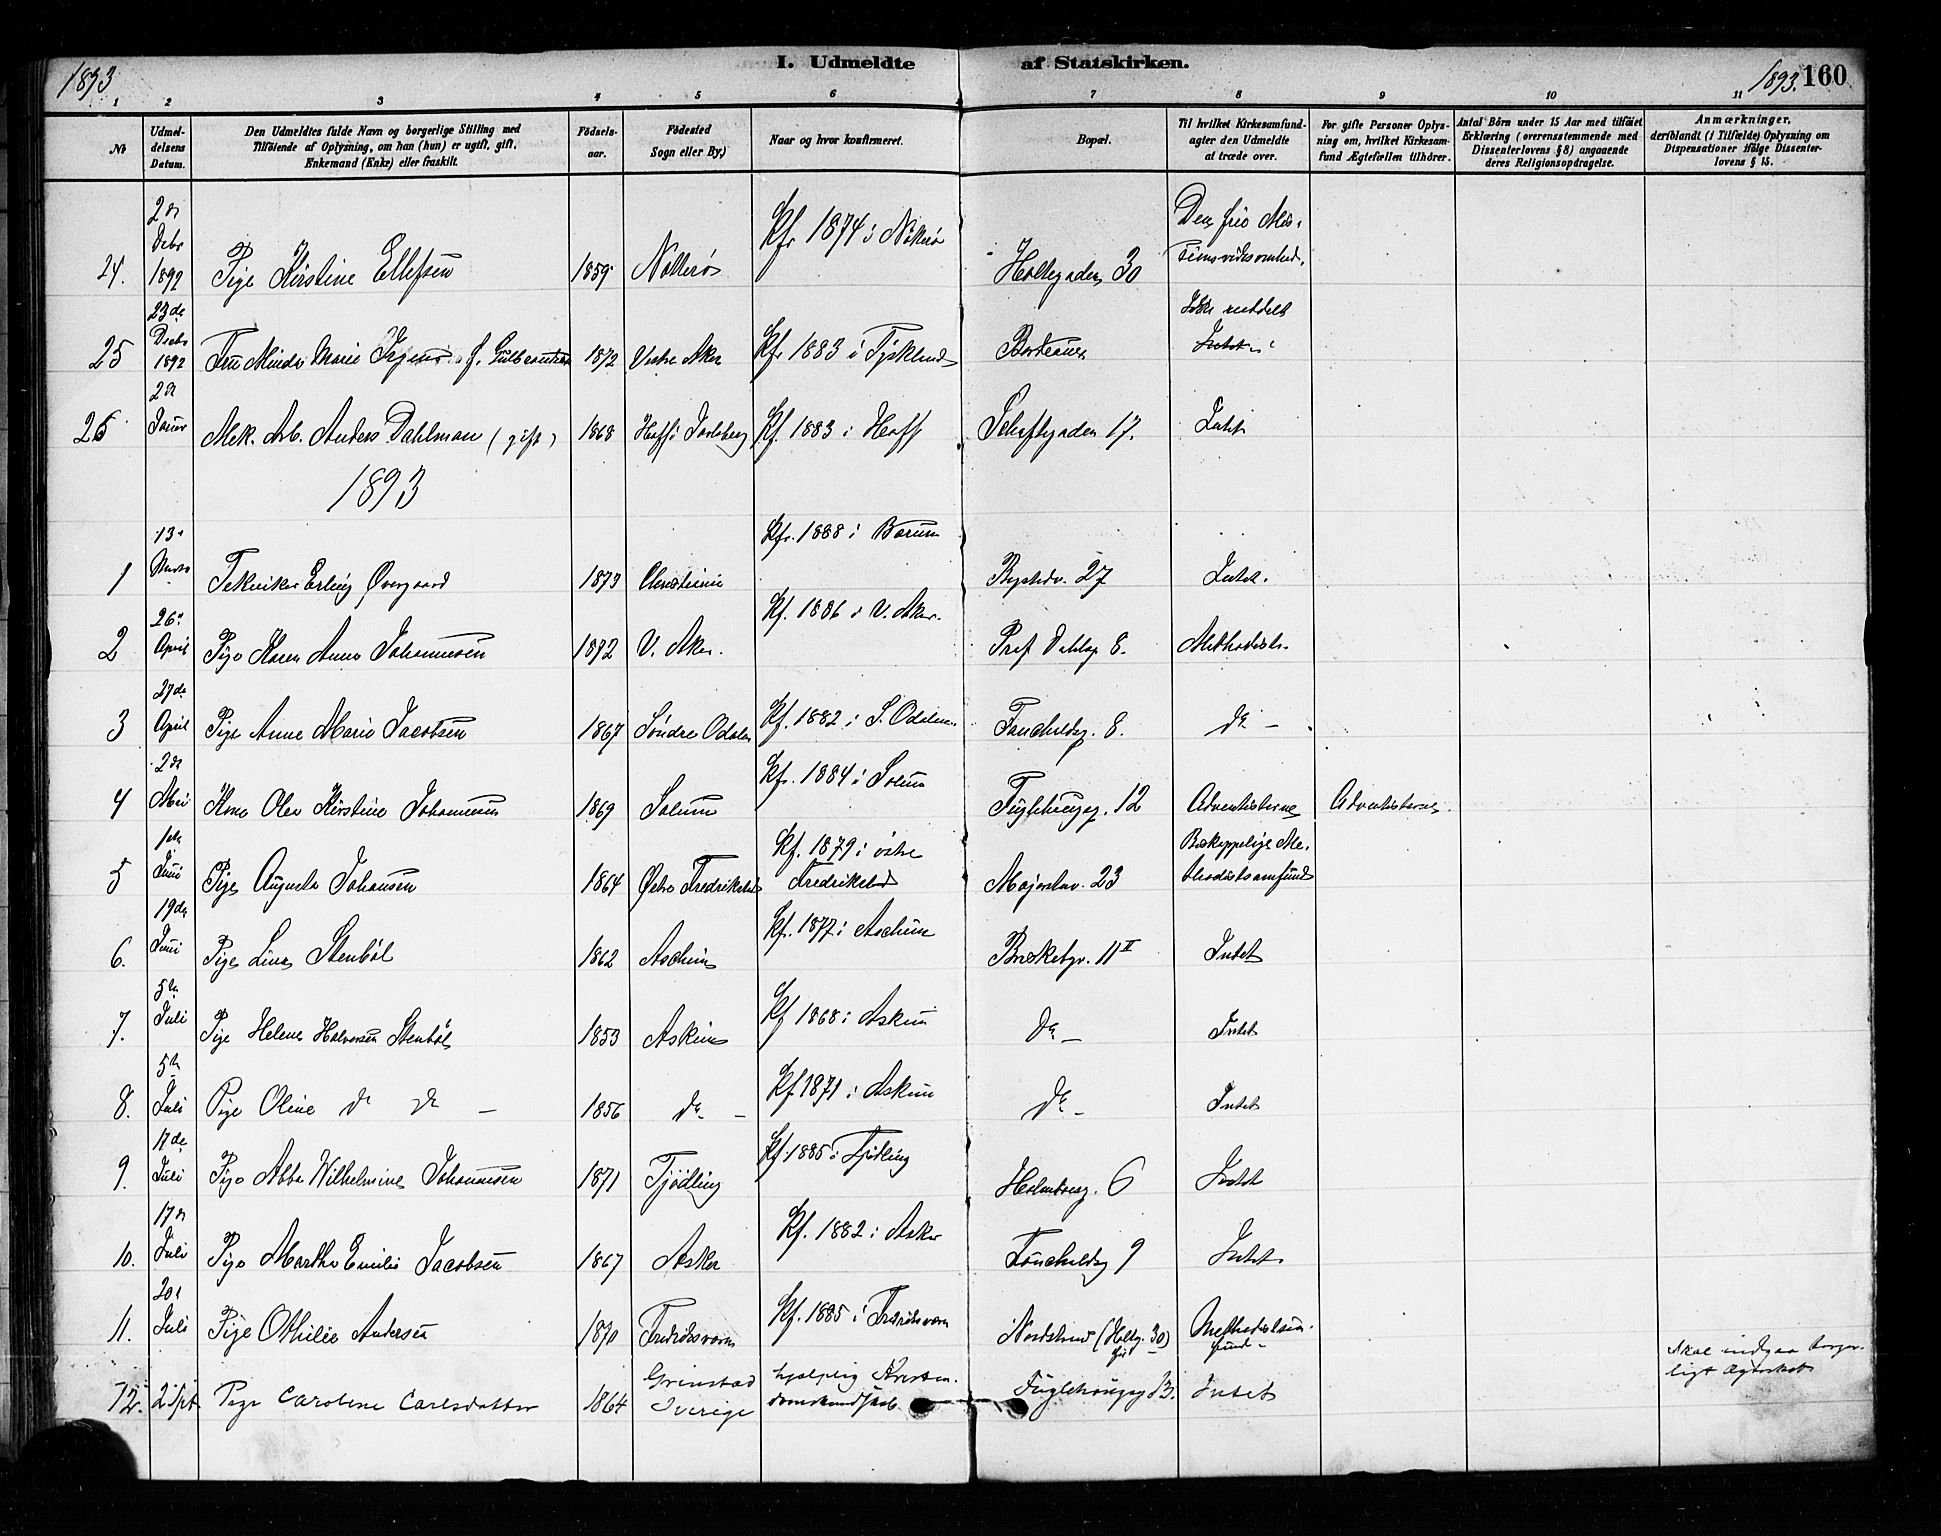 1893
I. Udmeldte af Statskirken.
1893. 160
1 2 3 4 5 6 7 8 9 10 11
No
Udmel-
delsens
Datum.
Den Udmeldtes fulde Navn og borgerlige Stilling med
Tilføiende af Oplysning, om han (hun) er ugift, gift,
Enkemand (Enke) eller fraskilt.
Fødsels-
aar.
Fødested
Sogn eller By.)
Naar og hvor konfirmeret.
Bopæl.
Til hvilket Kirkesamfund-
agter den Udmeldte
at træde over.
For gifte Personer Oplys-
ning om, hvilket Kirkesam-
fund Ægtefællen tilhører.
Antal Börn under 15 Aar med tilføiet
Erklæring (overensstemmende med
Dissenterlovens § 8) angaaende
deres Religionsopdragelse.
Anmærkninger,
deriblandt (i Tilfælde) Oplysning om
Dispensationer ifølge Dissenter-
lovens § 15.
24. 2de Debr 1892 Pige Kirstine Ellefsen 1859 Nøtterø Kf. 1874 i Nøtterø 30 Den frie
25 23de Decbr 1892 Fru Minda Marie f. 1872 Vestre Aker Kf. 1883 i Tyskland Ikke meddelt Intet
26 2de Januar Mek. Arb. Anders Dahlman (gift) 1868 Hoff i Jarlsberg Kf. 1883 i Hoff Schaftgaden 17. Intet
1893
1 13. Marts Tekniker Erling Øvergaard 1873 Christiania Kf. 1888 i Bærum 27 Intet.
2 26. April Pige Karen Anna Johannesen 1872 V. Aker. Kf. 1886 i V. Aker. Prof. Dahlsg. 8. Methodist.
3 27de April Pige Anne Marie Jacobsen 1867 Søndre Odalen Kf. 1882 i S. Odalen Fauchaldsg. 8. do -
4 2de Mai Kone Olea Kirstine Johannesen 1869 Solum Kf. 1884 i Solum Fuglehaugsg. 12 Adventisterne Adventisterne
5 1ste Juni Pige Augusta Johansen 1864 Østre Fredrikstad Kf. 1879 i østre Fredrikstad Majorstuv. 23 Biskoppelige Me-
thodistsamfund
6. 19de Juni Pige Lina Stenbøl 1862 Aschim Kf. 1877 i Aschim Briskebyv. 11 II Intet
7. 5te Juli Pige Helene Halvorsen Stenbøl 1853 Askim Kf. 1868 i Askim do - Intet
8. 5te Juli Pige Oline do do - 1856 do - Kf. 1871 i Askim do - Intet
9. 17de Juli Pige Abba Wilhelmine Johannesen 1871 Tjødling Kf. 1885 i Tjødling Holmboesg. 6 Intet
10. 17de Juli Pige Martha Emilie Jacobsen 1867 Asker Kf. 1882 i Asker Fauchaldsg 9 Intet
11. 20de Juli Pige Othilie Andersen 1870 Fredriksværn Kf. 1885 i Fredriksværn Nordstrand (Holteg. 30) Methodistsam-
fund
12. 2 Spt Pige Caroline Carlsdatter 1864 Grinstad
Sverige hjælpelig Kristen-
domskundskab Fuglehaugsg 13. Intet Skal indgaa borger-
ligt Ægteskab